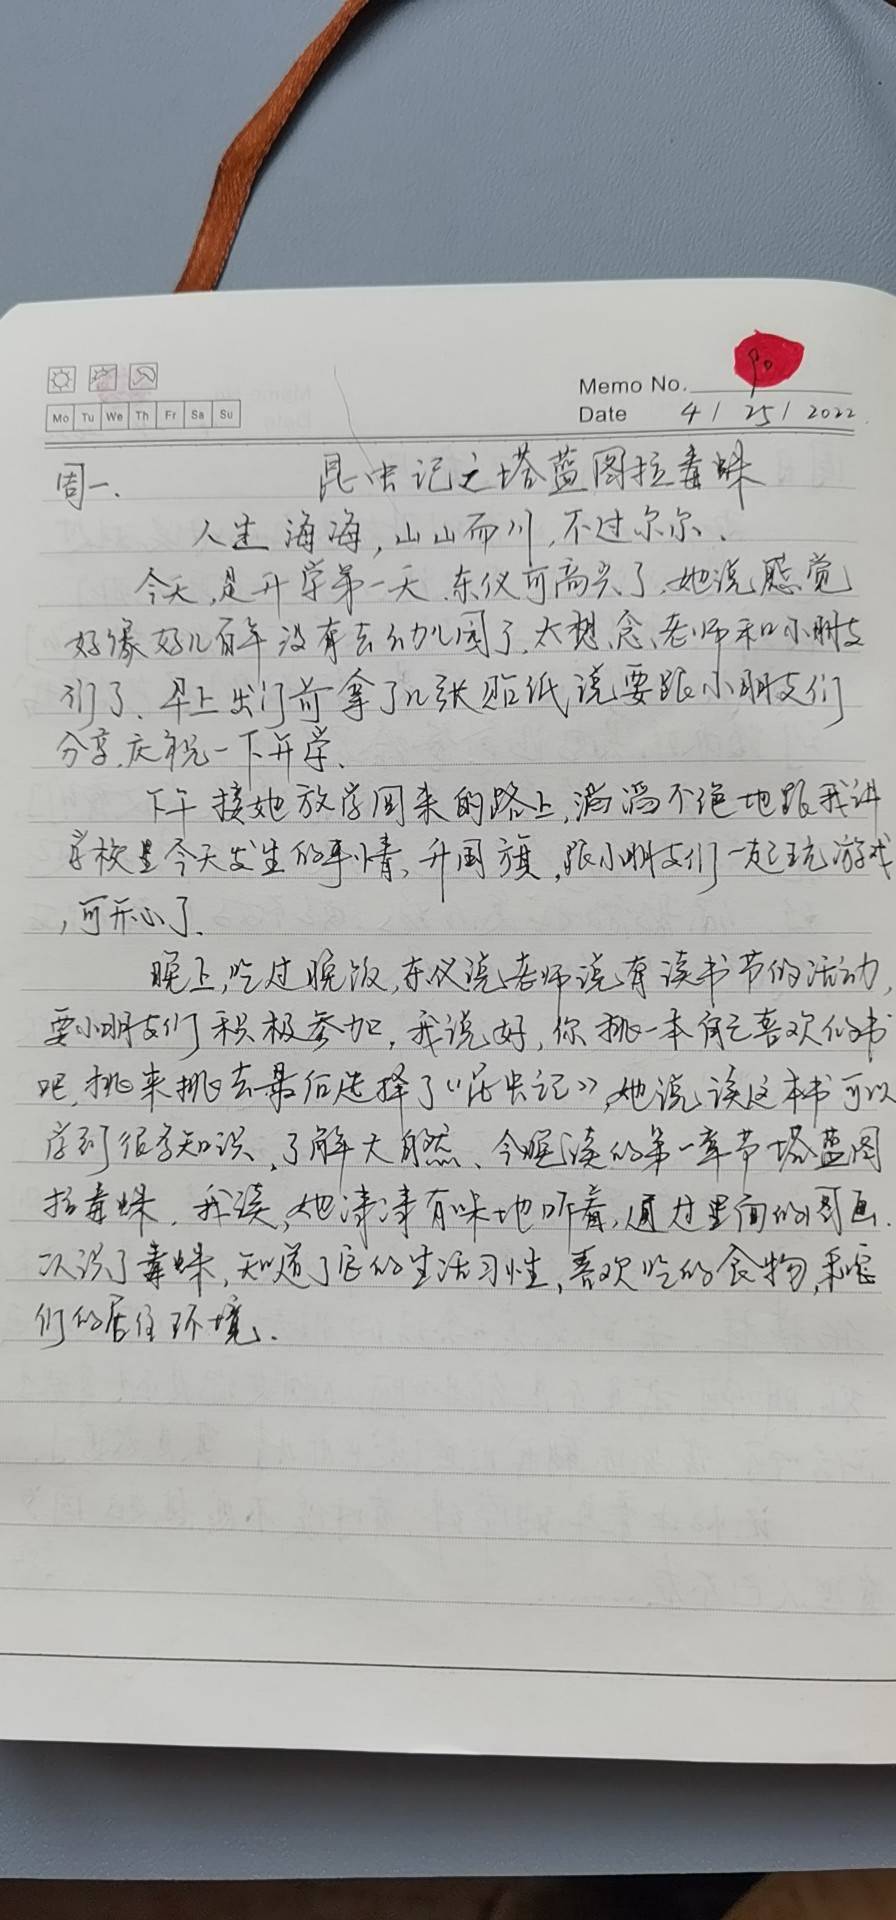 Memo No. 90
Mo Tu We Th Fr Sa Su
Date 4 / 25 / 2022
周一. 昆虫记之塔蓝图拉毒蛛
人生海海,山山而川,不过尔尔.
今天,是开学第一天.东仪可高兴了,她说感觉
好像好几百年没有去幼儿园了.太想念老师和小朋友
们了.早上出门前拿了几张贴纸说要跟小朋友们
分享.庆祝一下开学.
下午接她放学回来的路上,滔滔不绝地跟我讲
学校里今天发生的事情、升国旗,跟小朋友们一起玩游戏
,可开心了.
晚上,吃过晚饭,东仪说老师说有读书节的活动,
要小朋友们积极参加,我说好,你挑一本自己喜欢的书
吧,挑来挑去最后选择了《昆虫记》,她说读这本书可以
学到很多知识,了解大自然、今晚读的第一章节塔蓝图
拉毒蛛.我读,她津津有味地听着,通过里面的图画.
认识了毒蛛,知道了它的生活习性,喜欢吃的食物,和它
们的居住环境.